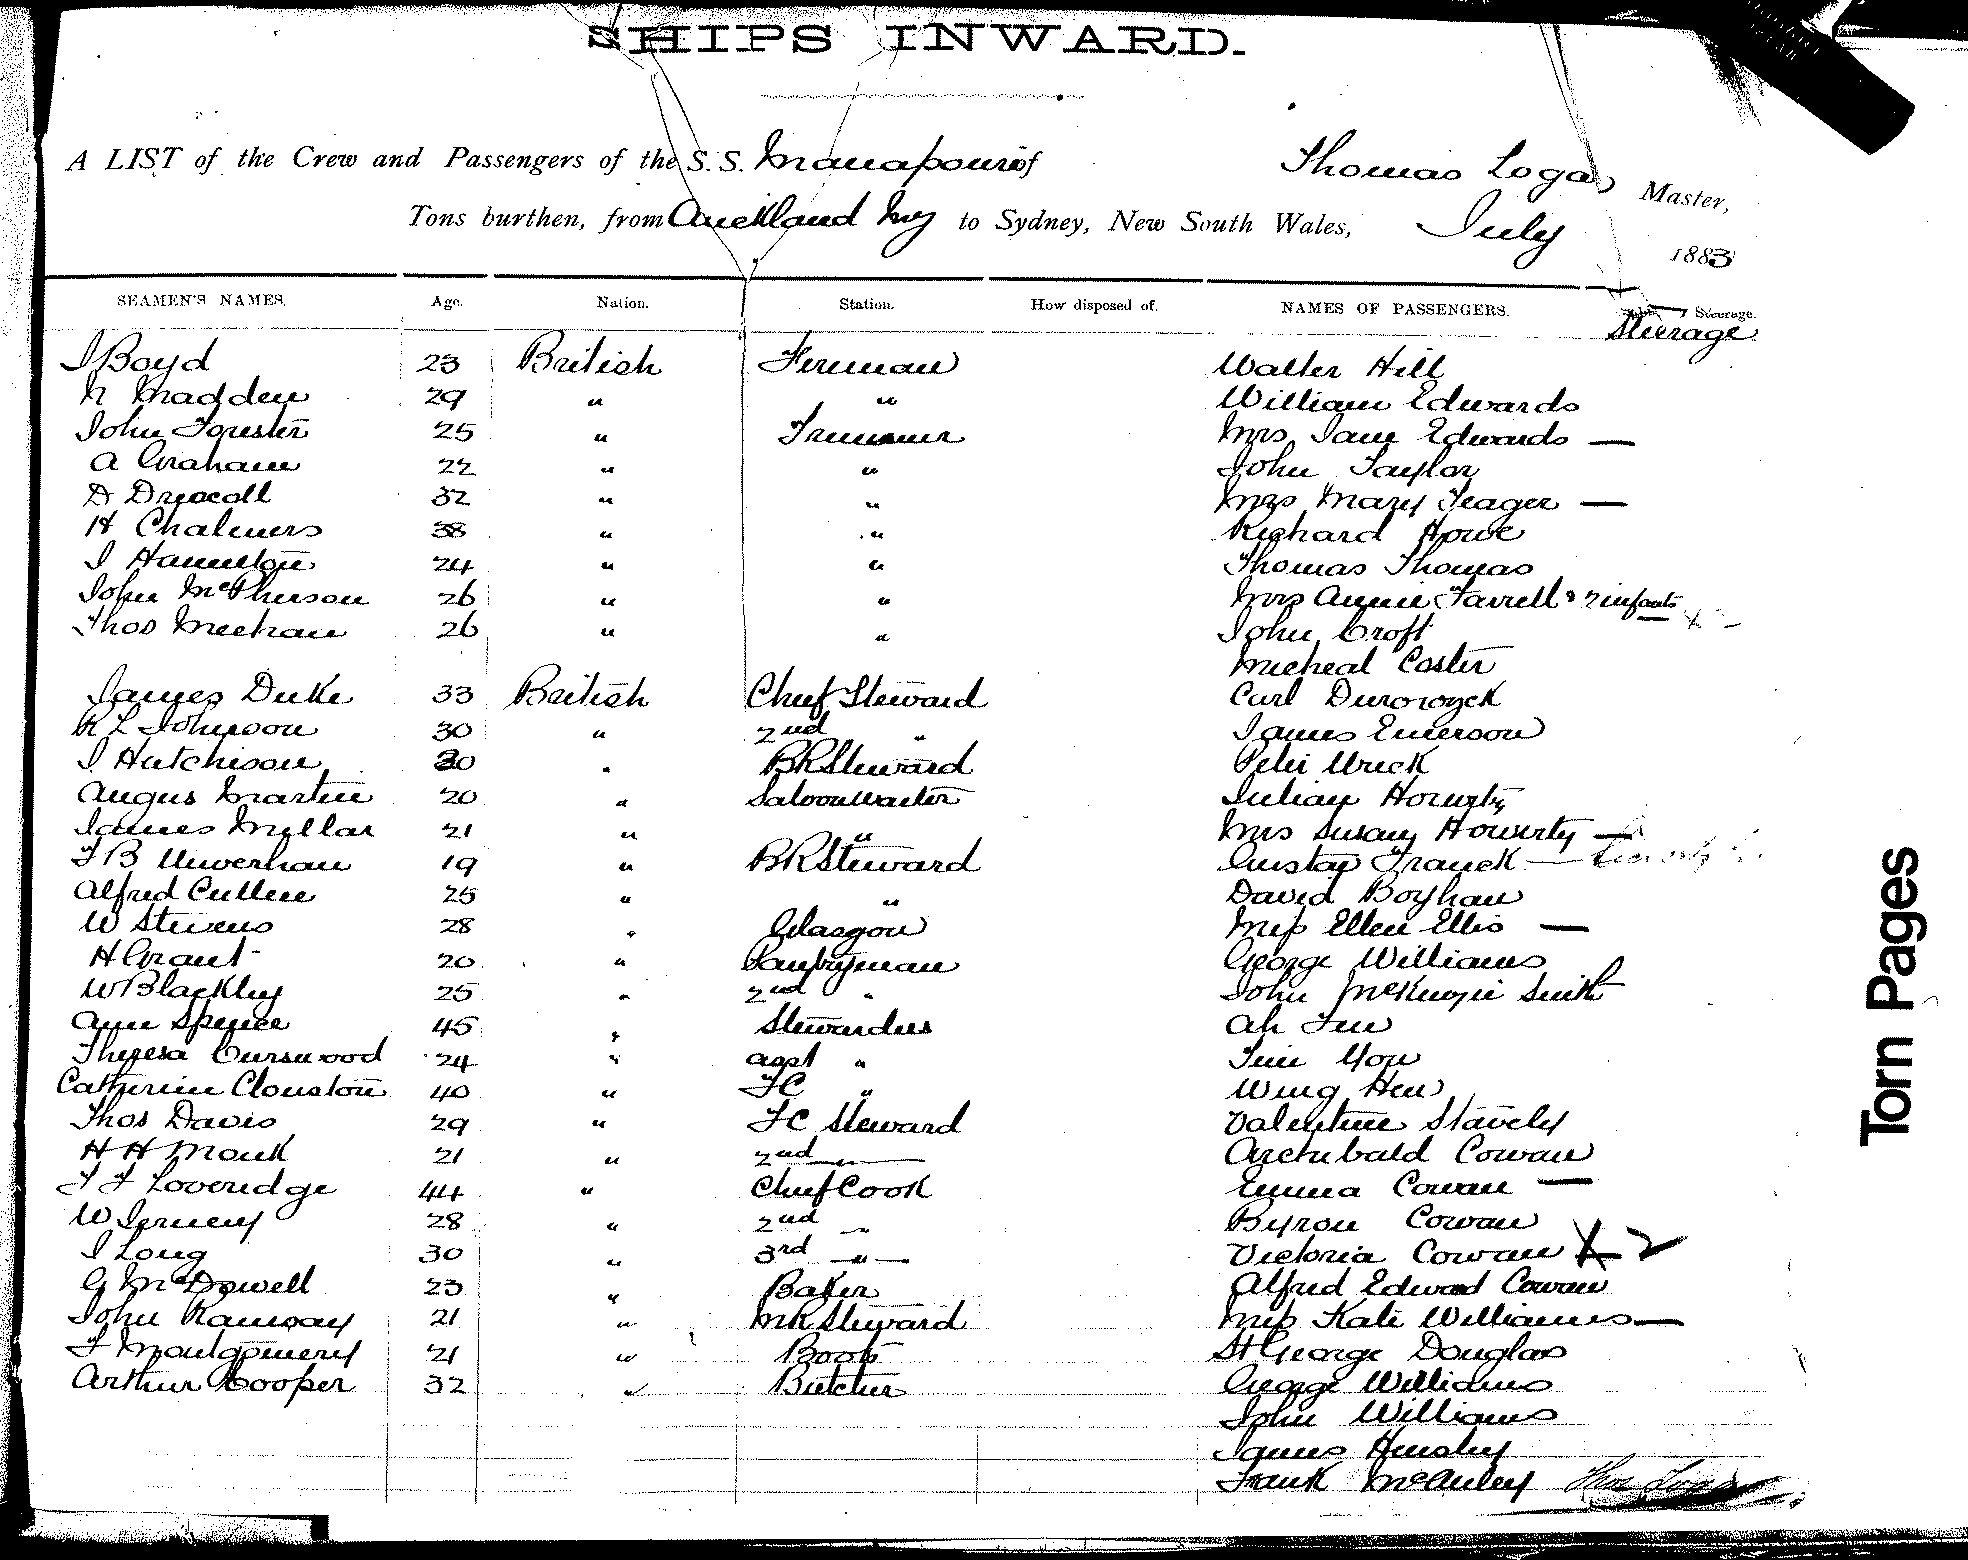 SHIPS INWARD.
A LIST of the Crew and Passengers of the S.S. Manapouri of Thomas Logan Master,
Tons burthen, from Auckland to Sydney, New South Wales, July 1883
SEAMEN'S NAMES. Age. Nation. Station. How disposed of. NAMES OF PASSENGERS. Steerage.
Steerage
J Boyd 23 British Fireman Walter Hill
N Madden 29 " " William Edwards
John Forester 25 " Trimmer Mrs Jane Edwards —
A Graham 22 " " John Taylor
D Driscoll 32 " " Mrs Mary Yeager —
H Chalmers 38 " " Richard Howe
J Hamilton 24 " " Thomas Thomas
John McPherson 26 " " Mrs Annie Farrell & 2 infants
Thos Meehan 26 " " John Croft
Micheal Coster
James Duke 33 British Chief Steward Carl
R L Johnson 30 " 2nd " James Emerson
J Hutchison 30 " BR Steward Peter
Angus Martin 20 " Saloon Waiter Julian
James Millar 21 " " Mrs Susan Howerty —
F B 19 " BR Steward Gustav Franck —
Alfred Cullen 25 " " David Boyhan
W Stevens 28 " Glasgow Miss Ellen Ellis —
H Grant 20 " Pantryman George Williams
W Blackley 25 " 2nd " John McKenzie Smith
Ann Spence 45 " Stewardess Ah
Theresa Curswood 24 " asst "
Catherine Clouston 40 " FC " Wing Hew
Thos Davis 29 " FC Steward Valentine Stavely
H H Monk 21 " 2nd — " — Archibald Cowan
F F Loveridge 44 " Chief Cook Emma Cowan —
W 28 " 2nd — " Byron Cowan
J Long 30 " 3rd — " — Victoria Cowan X 2
G McDowell 23 " Baker Alfred Edward Cowan
John Ramsay 21 " MR Steward Miss Kate Williams —
F Montgomery 21 " Boots St George Douglas
Arthur Cooper 32 " Butcher George Williams
John Williams
James Hensley
Frank McAuley
Torn Pages